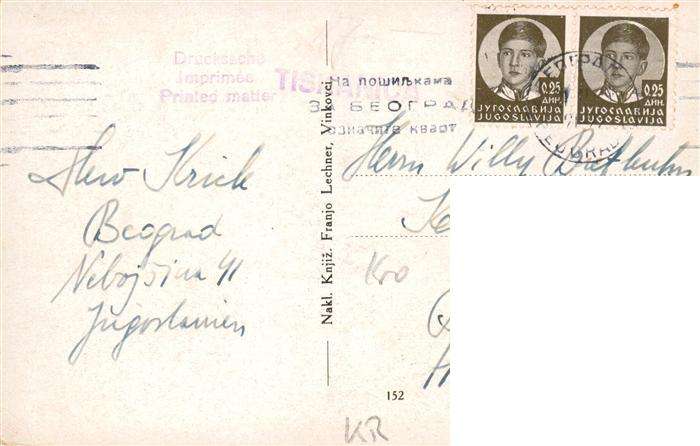 Drucksache
Imprimée
Printed matter
TISKANICA
На пошиљкама
ЗА БЕОГРАД
означите кварт
0.25
ДИН.
ЈУГОСЛАВИЈА
JUGOSLAVIJA
0.25
ДИН.
ЈУГОСЛАВИЈА
JUGOSLAVIJA
БЕОГРАД
BEOGRAD
Krick
Beograd
Nebojšina 41
Jugoslawien
Nakl. Knjiž. Franjo Lechner, Vinkovci
Herrn Willy
Kro
152
KR